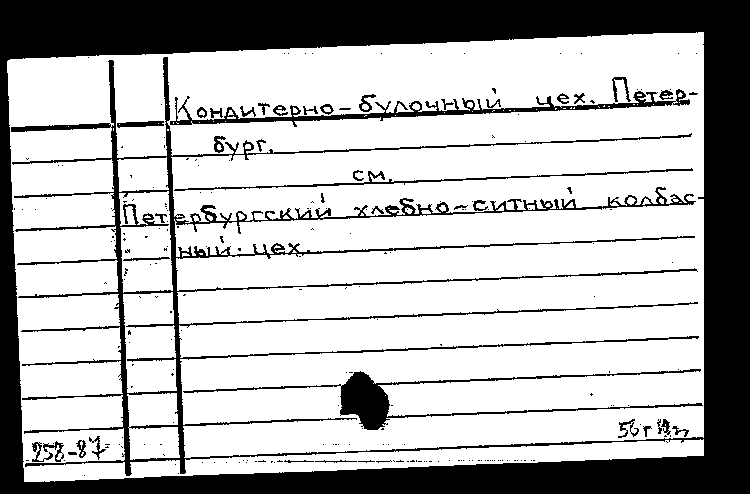 Кондитерно-булочный цех. Петер-
бург.
см.
Петербургский хлебно-ситный колбас-
ный цех.
258-87